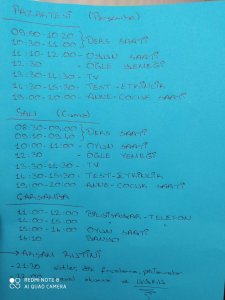 PAZARTESİ (Perşembe)
09:50-10:20
10:30-11:00 } DERS SAATİ
11:10-12:00 - OYUN SAATİ
12:30 - ÖĞLE YEMEĞİ
13:30-14:30 - TV
14:30-15:30 - TEST-ETKİNLİK
19:00-20:00 - ANNE-ÇOCUK SAATİ
SALI (Cuma)
08:30-09:00
09:10-09:40 } DERS SAATİ
10:00-11:00 - OYUN SAATİ
12:30 - ÖĞLE YEMEĞİ
13:30-14:30 - TV
14:30-15:30 - TEST-ETKİNLİK
19:00-20:00 ANNE-ÇOCUK SAATİ
ÇARŞAMBA
11:00-12:00 BİLGİSAYAR-TELEFON
15:00-16:00 OYUN SAATİ
16:10 BANYO
→ AKŞAM RUTİNİ
-21:30
REDMI NOTE 8
AI QUAD CAMERA